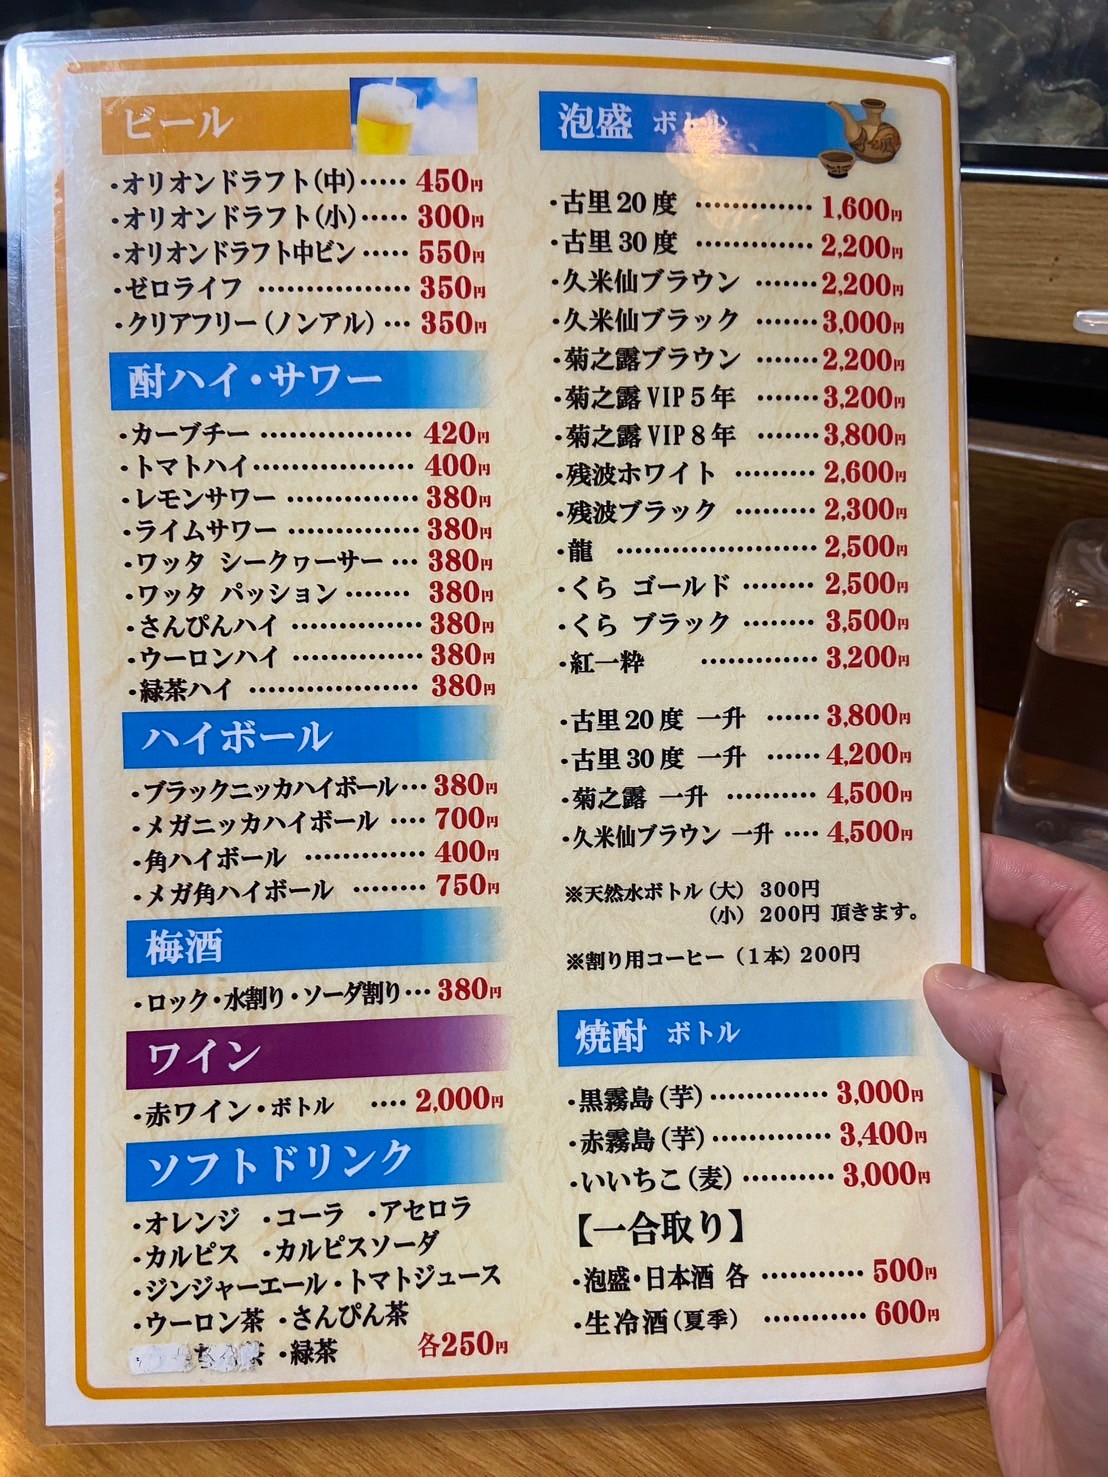 ビール
・オリオンドラフト(中)・・・・・ 450円
・オリオンドラフト(小)・・・・・ 300円
・オリオンドラフト中ビン・・・・・ 550円
・ゼロライフ ・・・・・・・・・・・・・・・・ 350円
・クリアフリー(ノンアル)・・・ 350円
酎ハイ・サワー
・カーブチー ・・・・・・・・・・・・・・・・ 420円
・トマトハイ・・・・・・・・・・・・・・・・・ 400円
・レモンサワー ・・・・・・・・・・・・・・ 380円
・ライムサワー ・・・・・・・・・・・・・・ 380円
・ワッタ シークヮーサー ・・・ 380円
・ワッタ パッション ・・・・・・・ 380円
・さんぴんハイ ・・・・・・・・・・・・・・ 380円
・ウーロンハイ ・・・・・・・・・・・・・・ 380円
・緑茶ハイ ・・・・・・・・・・・・・・・・・・ 380円
ハイボール
・ブラックニッカハイボール・・・ 380円
・メガニッカハイボール ・・・・ 700円
・角ハイボール ・・・・・・・・・・・・・ 400円
・メガ角ハイボール ・・・・・・・・ 750円
梅酒
・ロック・水割り・ソーダ割り・・・ 380円
ワイン
・赤ワイン・ボトル ・・・・ 2,000円
ソフトドリンク
・オレンジ ・コーラ ・アセロラ
・カルピス ・カルピスソーダ
・ジンジャーエール・トマトジュース
・ウーロン茶 ・さんぴん茶
・緑茶 各250円
泡盛 ボトル
・古里20度 ・・・・・・・・・・・・・ 1,600円
・古里30度 ・・・・・・・・・・・・・ 2,200円
・久米仙ブラウン ・・・・・・・ 2,200円
・久米仙ブラック ・・・・・・・・ 3,000円
・菊之露ブラウン ・・・・・・・・ 2,200円
・菊之露VIP5年 ・・・・・・・・ 3,200円
・菊之露VIP8年 ・・・・・・・・ 3,800円
・残波ホワイト ・・・・・・・・・ 2,600円
・残波ブラック ・・・・・・・・・ 2,300円
・龍 ・・・・・・・・・・・・・・・・・・・・・・ 2,500円
・くら ゴールド ・・・・・・・・ 2,500円
・くら ブラック ・・・・・・・・ 3,500円
・紅一粋 ・・・・・・・・・・・・・ 3,200円
・古里20度 一升 ・・・・・・ 3,800円
・古里30度 一升 ・・・・・・ 4,200円
・菊之露 一升 ・・・・・・・・・・ 4,500円
・久米仙ブラウン 一升 ・・・・ 4,500円
※天然水ボトル(大) 300円
(小) 200円 頂きます。
※割り用コーヒー(1本)200円
焼酎 ボトル
・黒霧島(芋)・・・・・・・・・・・・・ 3,000円
・赤霧島(芋)・・・・・・・・・・・・・ 3,400円
・いいちこ(麦)・・・・・・・・・・ 3,000円
【一合取り】
・泡盛・日本酒 各 ・・・・・・・・・・・ 500円
・生冷酒(夏季) ・・・・・・・・・・・ 600円